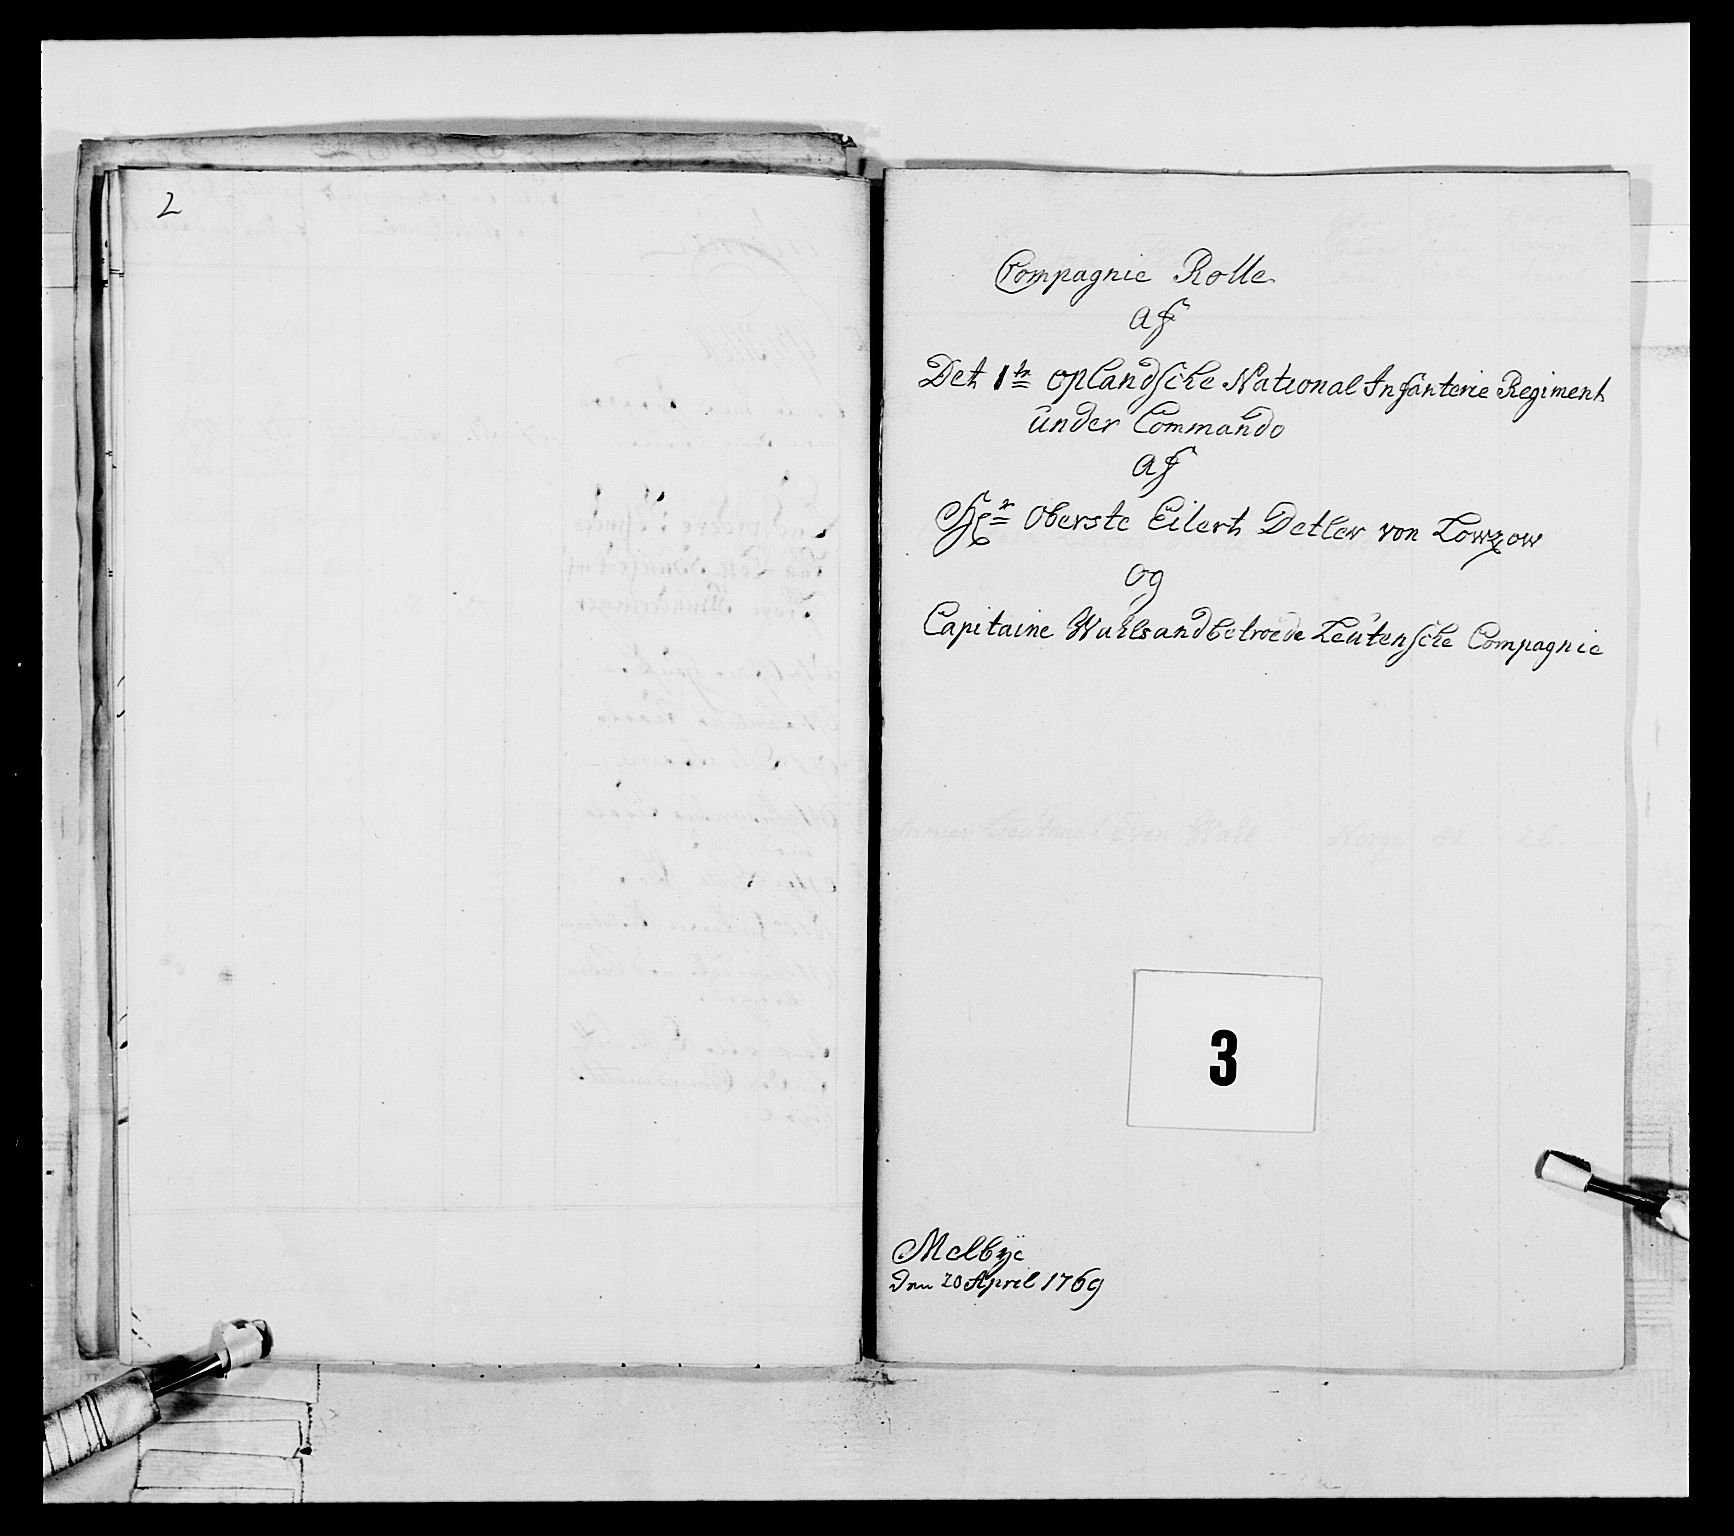 2
Compagnie Rolle
af
Det 1te Oplandsche National Infanterie Regiment
under Commando
af
Hr Oberste Eilert Detlev von Lowzow
og
Capitaine Wahls andbetroede Leutensche Compagnie
3
Melbÿe
den 20 April 1769